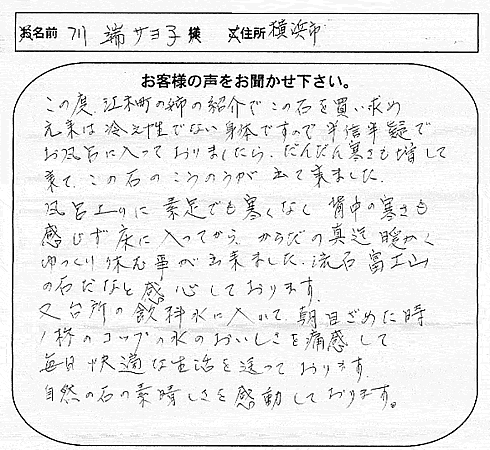 お名前 川端サヨ子様 ご住所 横浜市
お客様の声をお聞かせ下さい。
この度、江木町の姉の紹介でこの石を買い求め
元来は冷え性でない身体ですので半信半疑で
お風呂に入っておりましたら、だんだん寒さも増して
来て、この石のこうのうが出て来ました。
風呂上りに素足でも寒くなく背中の寒さも
感じず床に入ってから、からだの真迄暖かく
ゆっくり休む事が出来ました。流石富士山
の石だなと感心しております。
又台所の飲料水に入れて、朝目ざめた時
1杯のコップの水のおいしさを痛感して
毎日快適な生活を送っております。
自然の石の素晴しさを感動しております。